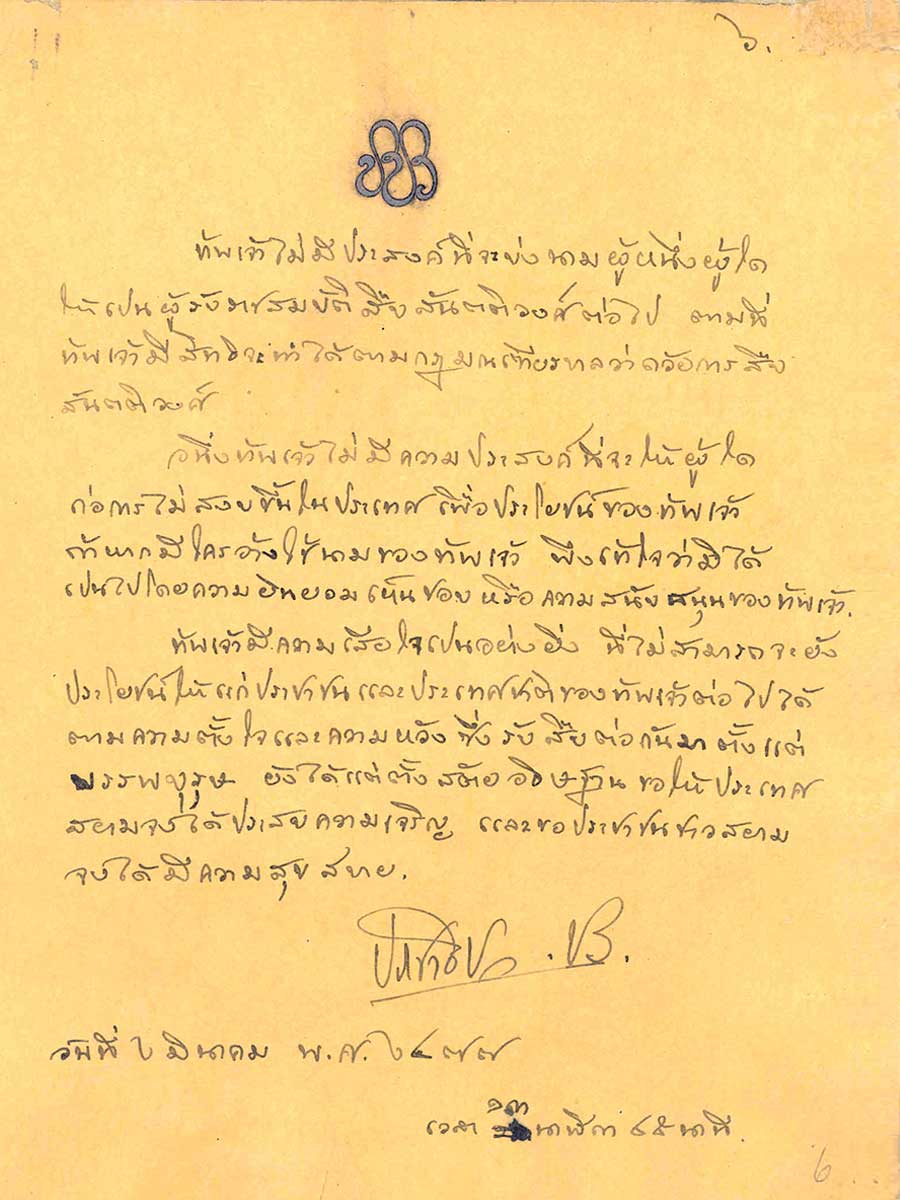 ๖.
ข้าพเจ้าไม่มีประสงค์ที่จะบ่งนามผู้หนึ่งผู้ใด
ให้เป็นผู้รับราชสมบัติสืบสันตติวงศ์ต่อไป ตามที่
ข้าพเจ้ามีสิทธิจะทำได้ตามกฎมณเฑียรบาลว่าด้วยการสืบ
สันตติวงศ์
อนึ่งข้าพเจ้าไม่มีความประสงค์ที่จะให้ผู้ใด
ก่อการไม่สงบขึ้นในประเทศ เพื่อประโยชน์ของข้าพเจ้า
ถ้าหากมีใครอ้างใช้นามของข้าพเจ้า พึงเข้าใจว่ามิได้
เป็นไปโดยความยินยอมเห็นชอบ หรือความสนับสนุนของข้าพเจ้า.
ข้าพเจ้ามีความเสียใจเป็นอย่างยิ่ง ที่ไม่สามารถจะยัง
ประโยชน์ให้แก่ประชาชนและประเทศชาติของข้าพเจ้าต่อไปได้
ตามความตั้งใจและความหวัง ซึ่งรับสืบต่อกันมาตั้งแต่
บรรพบุรุษ ยังได้แต่ตั้งสัตย์อธิษฐาน ขอให้ประเทศ
สยามจงได้ประสบความเจริญ และขอประชาชนชาวสยาม
จงได้มีความสุขสบาย.
ประชาธิปก . ปร.
วันที่ ๒ มีนาคม พ.ศ. ๒๔๗๗
เวลา ๑๓ นาฬิกา ๔๕ นาที
6